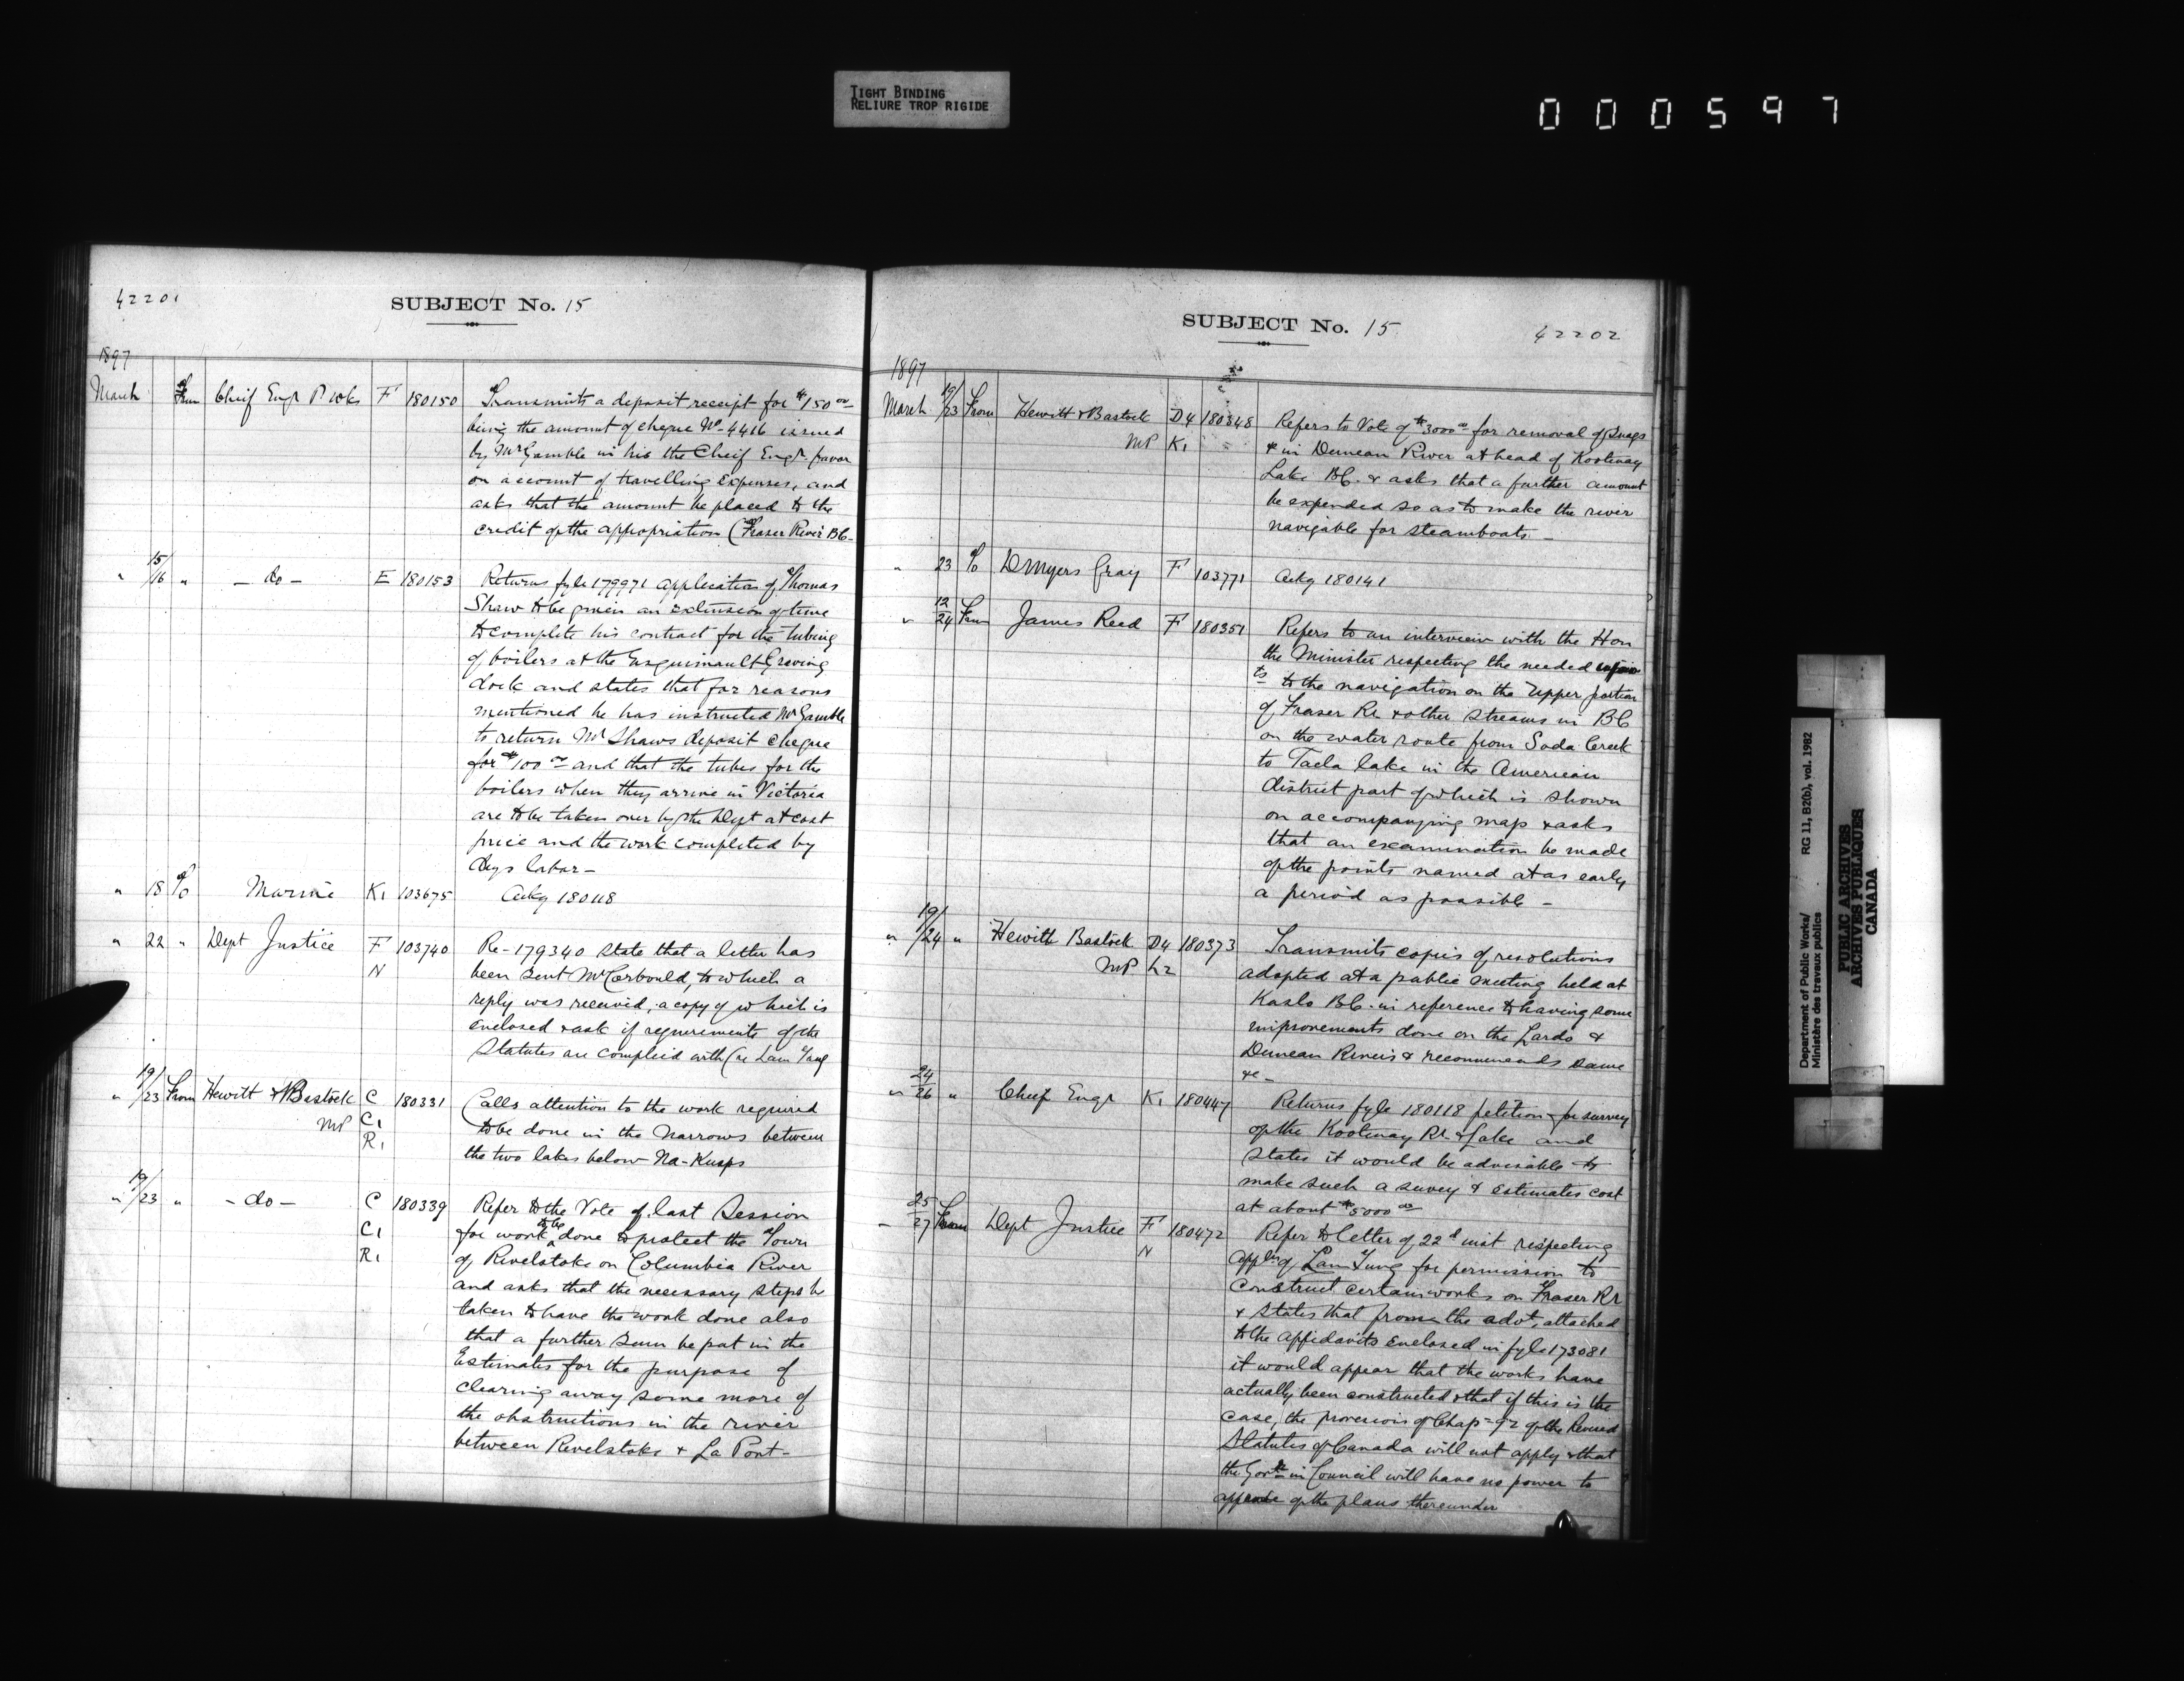 TIGHT BINDING
RELIURE TROP RIGIDE
000597
42201
SUBJECT No. 15
1897
March From Cheif Engr P Wks F 180150 Transmits a deposit receipt for $150 00
being the amount of cheque No 4416 issued
by Mr Gamble in his the Cheif Engr. favor
on account of travelling Expenses, and
asks that the amount be placed to the
credit of the appropriation (Fraser River BC
" 15/16 " - do - E 180153 Returns fyle 179971 application of Thomas
Shaw to be given an extension of time
to complete his contract for the tubing
of boilers at the Esquimault Graving
dock and states that for reasons
mentioned he has instructed Mr Gamble
to return Mr Shaws deposit cheque
for $100 00 and that the tubes for the
boilers when they arrive in Victoria
are to be taken over by the Dept at cost
price and the work completed by
days labor -
" 18 To Marine K1 103675 Ackg 180118
" 22 " Dept Justice F 103740 Re - 179340 state that a letter has
N been sent Mr Corbould, to which a
reply was received, a copy of which is
enclosed & ask if requirements of the
Statutes are complied with (re Lam Tung
" 19/23 From Hewitt & Bostock C 180331 Calls attention to the work required
MP C1 to be done in the Narrows between
R1 the two lakes below Na-Kusps
" 19/23 " - do - C 180339 Refer to the Vote of last Session
C1 for work to be done to protect the Town
R1 of Revelstoke on Columbia River
and asks that the necessary steps be
taken to have the work done also
that a further sum be put in the
Estimates for the purpose of
clearing away some more of
the obstructions in the river
between Revelstoke & La Port -
SUBJECT No. 15
42202
1897
March 19/23 From Hewitt & Bastock D4 180348 Refers to Vote of $3000 00 for removal of Snags
MP K1 " & in Duncan River at head of Kootenay
Lake BC. & asks that a further amount
be expended so as to make the river
navigable for steamboats -
" 23 To D Myers Gray F 103771 Ackg 180141
" 12/24 From James Reed F 180351 Refers to an interview with the Hon
the Minister respecting the needed
ts to the navigation on the Upper portion
of Fraser Rr & other streams in BC
on the water route from Soda Creek
to Tacla lake in the American
district part of which is shown
on accompanying map & asks
that an examination be made
of the points named at as early
a period as possible -
" 19/24 " Hewitt Bostock D4 180373 Transmits copies of resolutions
MP L2 adopted at a public meeting held at
Kaslo BC. in reference to having some
improvements done on the Lardo &
Duncan Rivers & recommends same
&c -
" 24/26 " Cheif Engr K1 180447 Returns fyle 180118 petition for survey
of the Kootenay Rr. & Lake and
states it would be advisable to
make such a suvey & estimates cost
at about $5000 00
" 25/27 From Dept Justice F 180472 Refer to letter of 22d inst respecting
N appln of Lam Tung for permission to
construct certain works on Fraser Rr
& states that from the advt, attached
to the affidavits enclosed in fyle 173081
it would appear that the works have
actually been constructed & that if this is the
case, the provisions of Chap - 92 of the Revised
Statutes of Canada will not apply & that
the Govr in Council will have no power to
approve of the plans thereunder
Department of Public Works/ RG 11, B2(b), vol. 1982
Ministère des travaux publics
PUBLIC ARCHIVES
ARCHIVES PUBLIQUES
CANADA